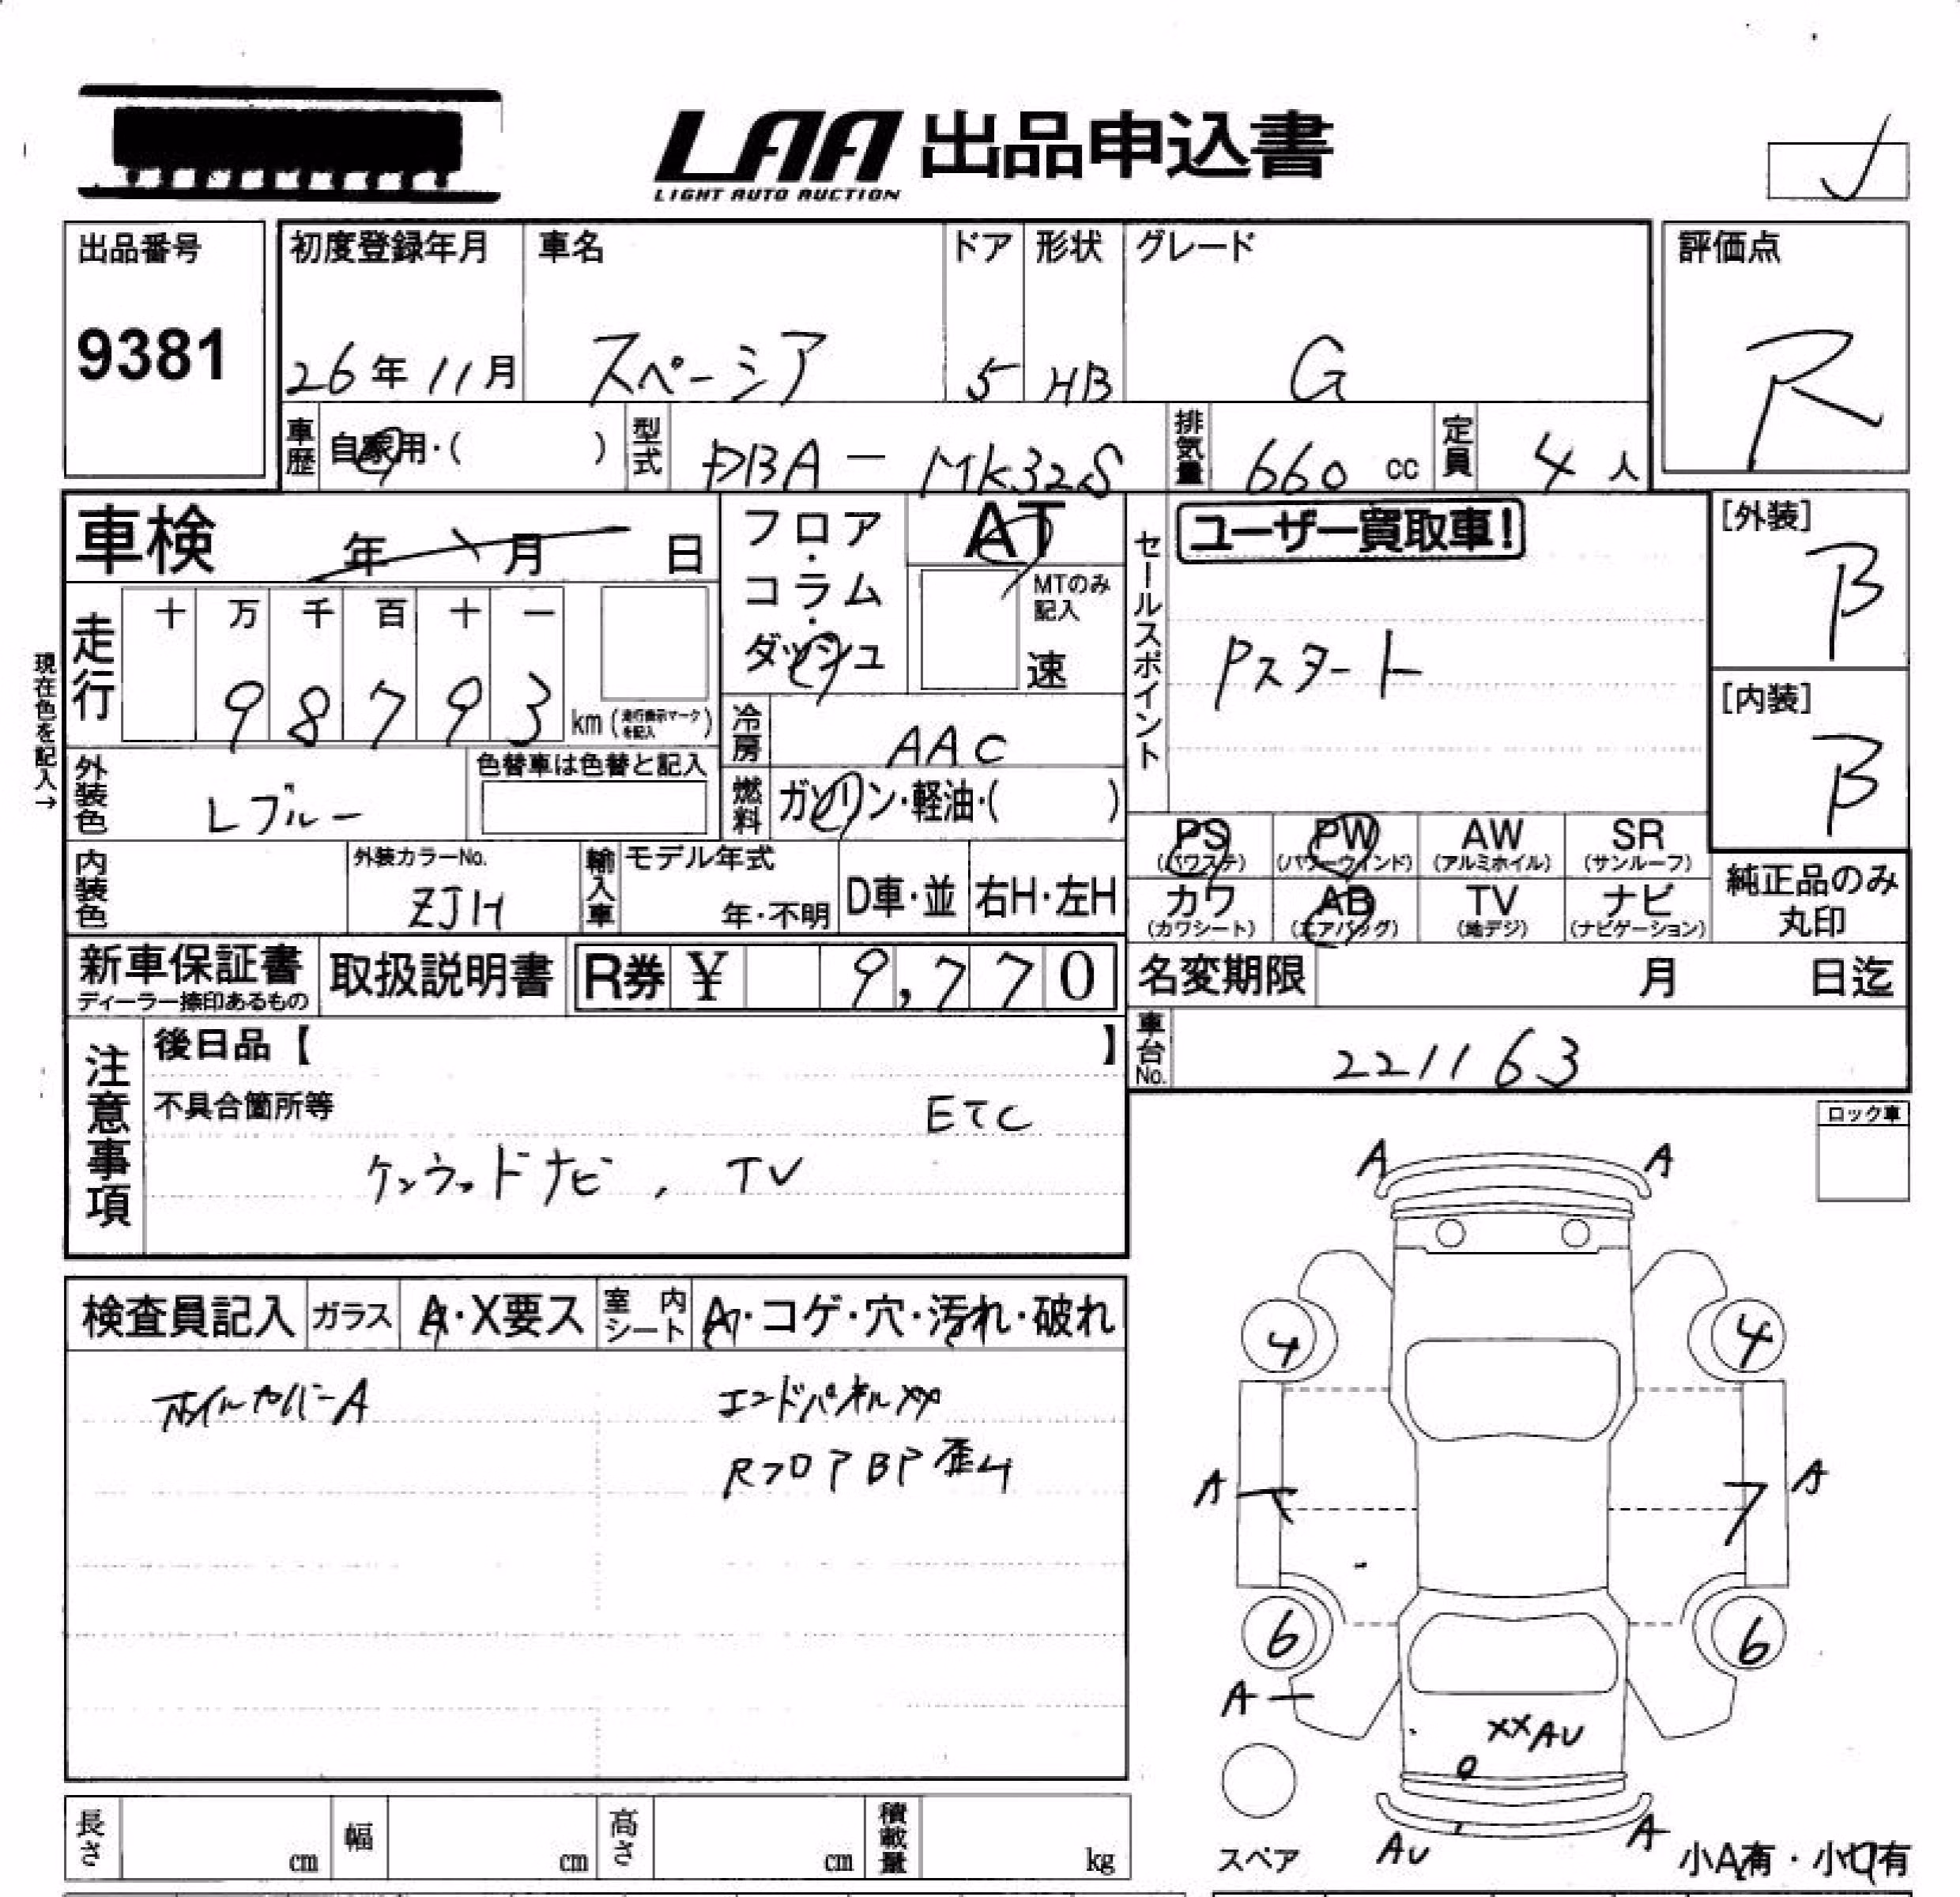 LAA 出品申込書
LIGHT AUTO AUCTION
出品番号
9381
初度登録年月
26年11月
車名
スペーシア
ドア
5
形状
HB
グレード
G
評価点
R
車歴 自家用・( )
型式 DBA - MK32S
排気量 660 cc
定員 4 人
車検 年 月 日
フロア・コラム・ダッシュ
AT
MTのみ記入
速
セールスポイント
ユーザー買取車!
Pスタート
[外装]
B
[内装]
B
現在色を記入→
走行
十 万 千 百 十 一
9 8 7 9 3
km (走行表示マークを記入)
冷房 AAC
外装色 Lブルー
色替車は色替と記入
燃料 ガソリン・軽油・( )
PS (パワステ)
PW (パワーウィンド)
AW (アルミホイル)
SR (サンルーフ)
カワ (カワシート)
AB (エアバッグ)
TV (地デジ)
ナビ (ナビゲーション)
純正品のみ
丸印
内装色
外装カラーNo.
ZJH
輸入車
モデル年式
年・不明
D車・並
右H・左H
新車保証書
ディーラー捺印あるもの
取扱説明書
R券 ¥ 9,770
名変期限 月 日迄
車台No. 221163
注意事項
後日品【 】
不具合箇所等
ETC
ケンウッドナビ , TV
ロック車
検査員記入
ガラス A・X要ス
室内シート A・コゲ・穴・汚れ・破れ
ホイルカバーA
エンドパネルXX
RフロアBP歪ム
A A
4 4
A A
6 6
A
XXAU
スペア
AU A
小A有・小U有
長さ cm
幅 cm
高さ cm
積載量 kg